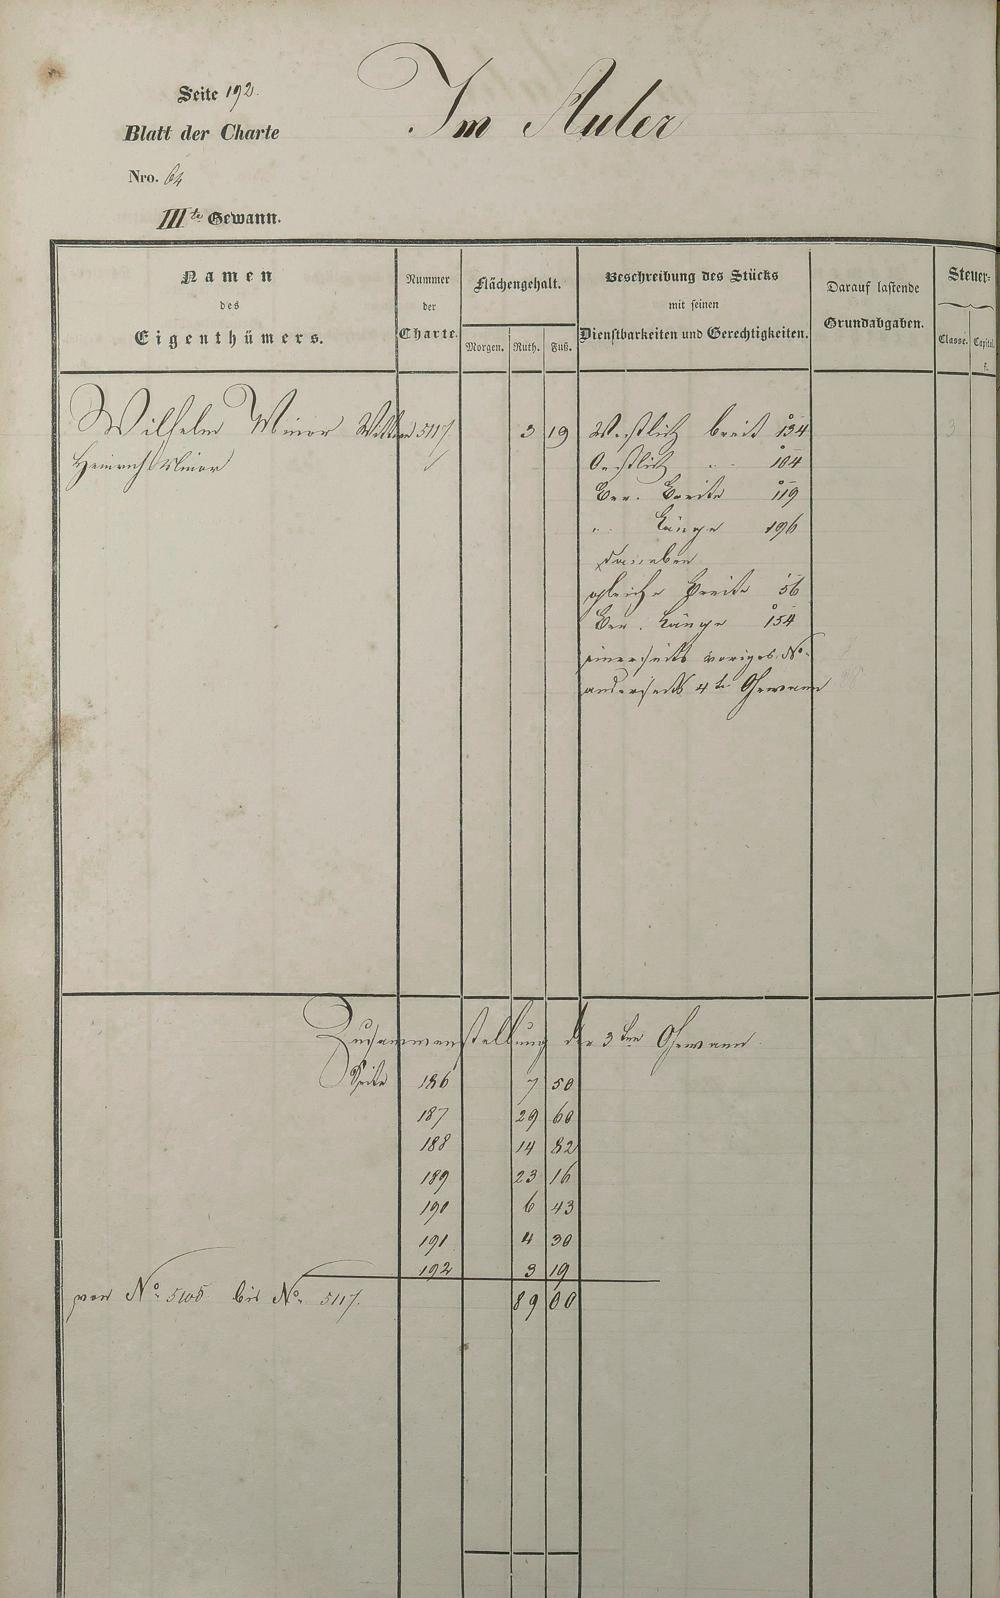 Seite 192.
Im Auler
Blatt der Charte
Nro. 64
III te Gewann.
Namen
des
Eigenthümers.
Nummer
der
Charte.
Flächengehalt.
Morgen. Ruth. Fuß.
Beschreibung des Stücks
mit seinen
Dienstbarkeiten und Gerechtigkeiten.
Darauf lastende
Grundabgaben.
Steuer-
Classe. Capital.
f.
Wilhelm Minor 5117. 3 19 Westlich breit 134 3
Heinrich Minor Oestlich " 104
Ber. Breite 119
" Länge 196
daneben
gleiche Breite 56
Ber. Länge 154
einerseits voriges No.
anderseits 4te Gewann
Zusammenstellung der 3ten Gewann.
Seite 186 7 50
187 29 60
188 14 82
189 23 16
190 6 43
191 4 30
192 3 19
von No. 5105 bis No. 5117. 89 00